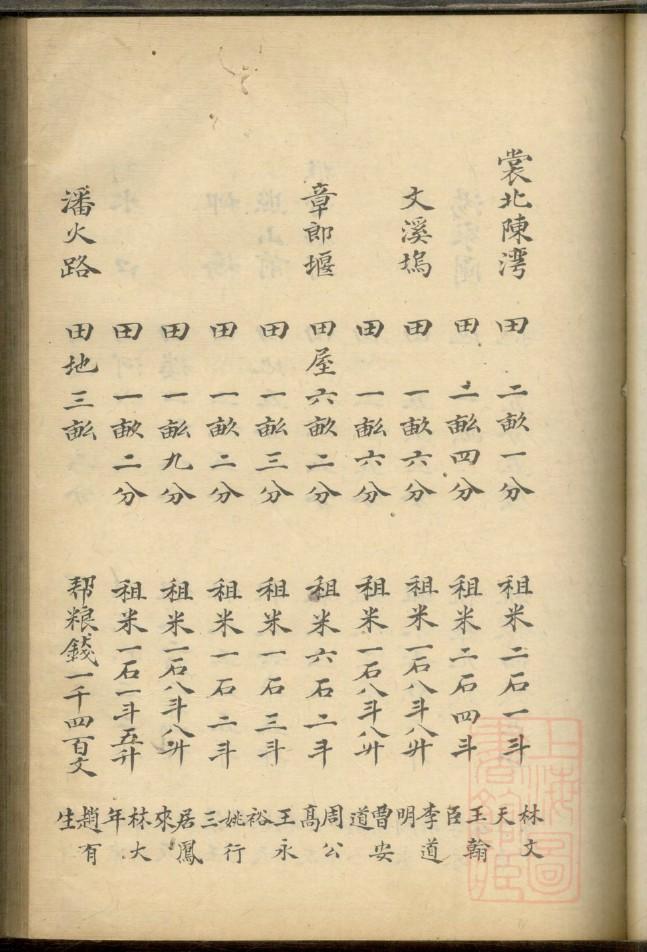 裳北陳灣 田 二畝一分 租米二石一斗 林文天
田 二畆四分 租米二石四斗 王翰臣
文溪塢 田 一畝六分 租米一石八斗八升 李道明
田 一畆六分 租米一石八斗八升 曹安道
章郎堰 田屋六畝二分 租米六石二斗 周公髙
田 一畆三分 租米一石三斗 王永裕
田 一畝二分 租米一石二斗 姚行三
田 一畆九分 租米一石八斗八升 居鳳來
田 一畝二分 租米一石一斗五升 林大年
潘火路 田地三畆 帮粮錢一千四百文 趙有生
上海圖
書館藏